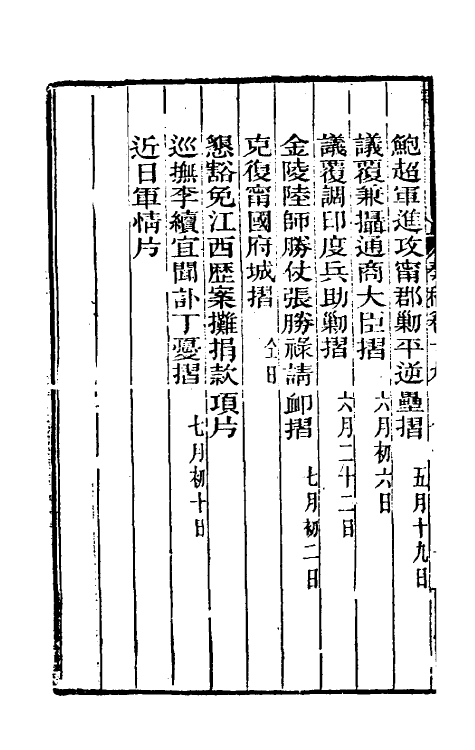 鮑超軍進攻甯郡勦平逆壘摺　五月十九日
議覆兼攝通商大臣摺　六月初六日
議覆調印度兵助勦摺　六月二十二日
金陵陸師勝仗張勝祿請卹摺　七月初二日
克復甯國府城摺　仝日
懇豁免江西歴案攤捐款項片
巡撫李續宜聞訃丁憂摺　七月初十日
近日軍情片